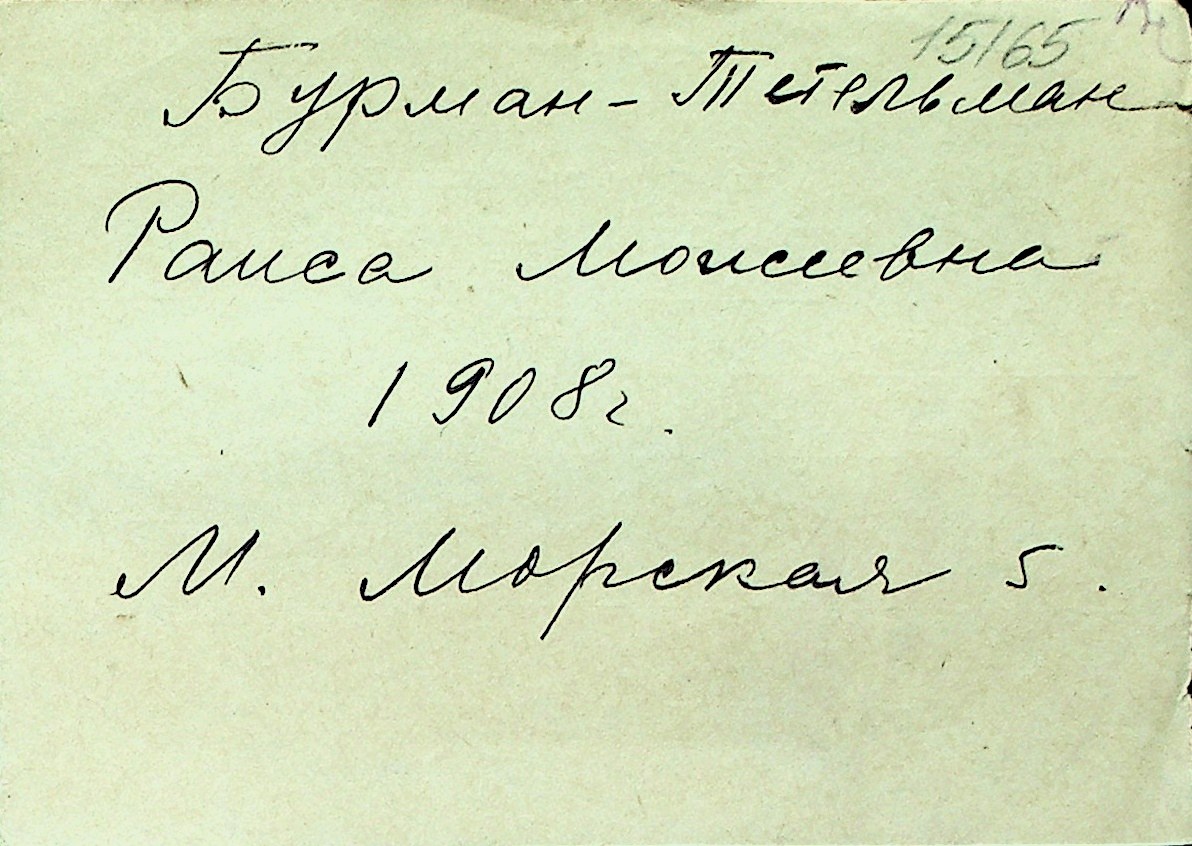 15/65
Бурман-Тетельман
Раиса Моисевна
1908г.
М. Морская 5.